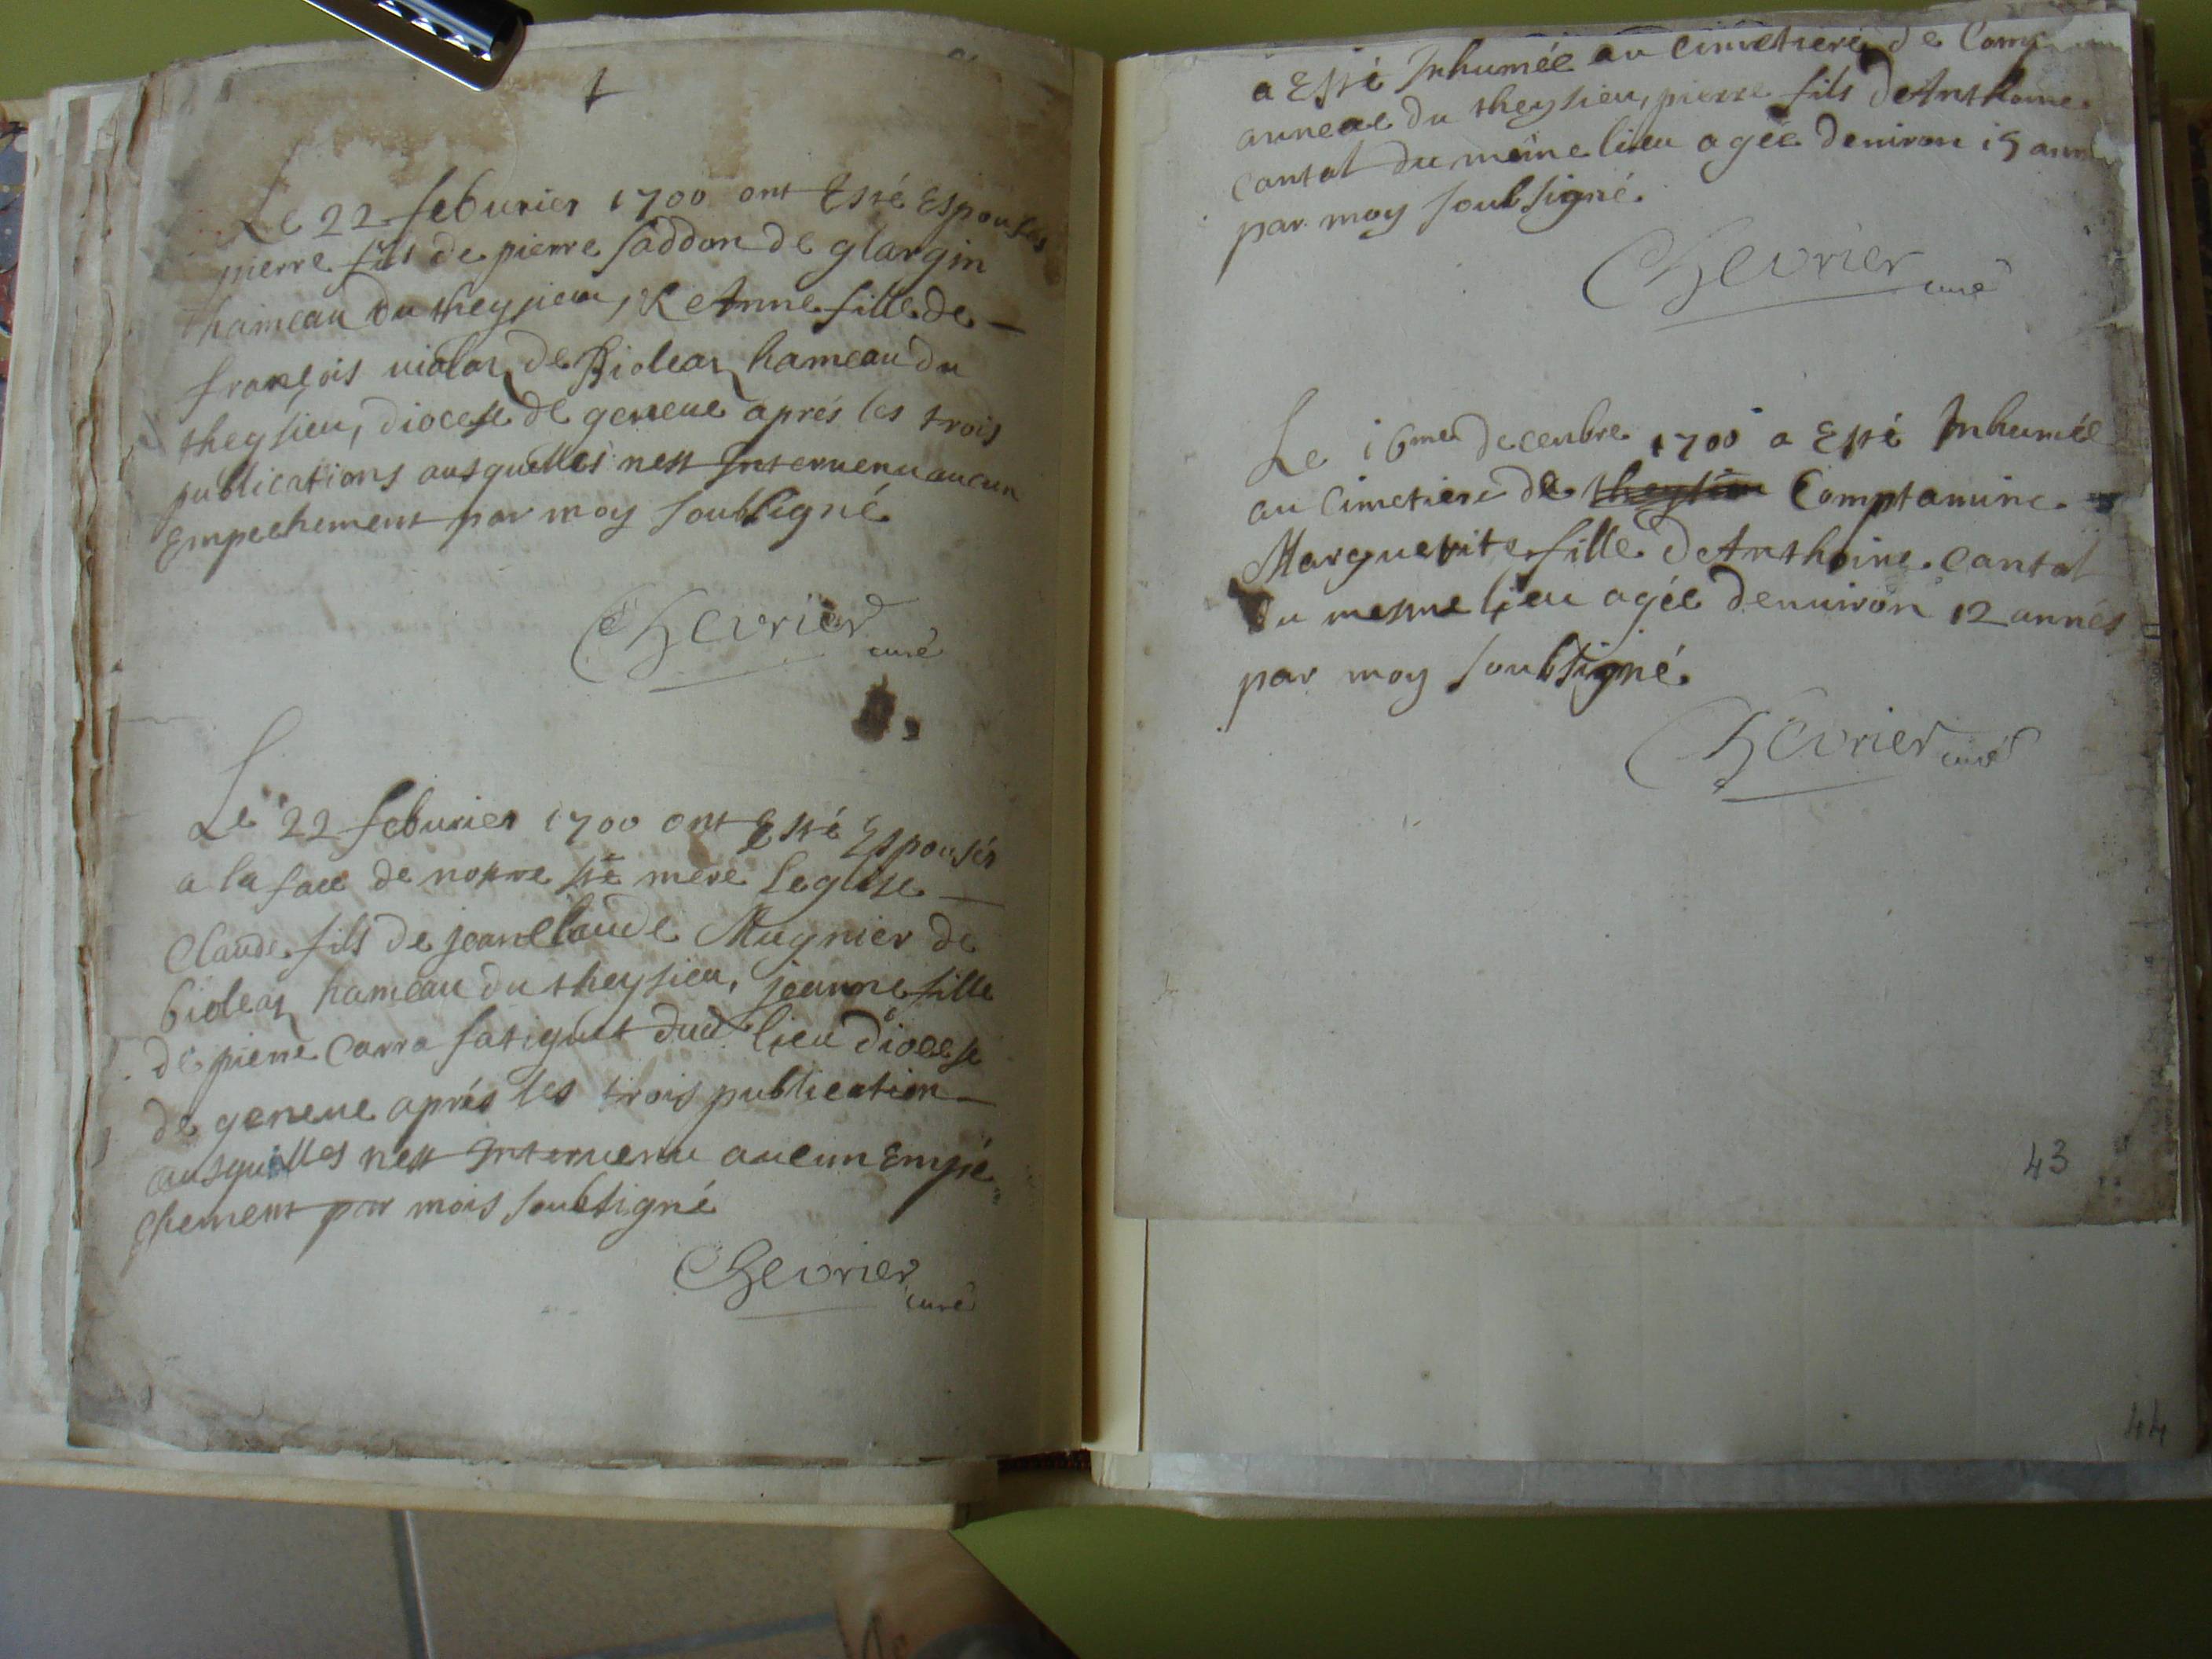 Le 22 feburier 1700 ont Esté Espousés
pierre fils de pierre saddon de glargin
hameau du theysieu, & Anne fille de
françois uiolaz de Bioleaz hameau du
theysieu, diocese de geneue aprés les trois
publications ausquelles nest Interuenu aucun
Empechement par moy soubsigné
Chevrier
curé
Le 22 feburier 1700 ont Esté Espousés
a la face de nostre ste mere Leglise
Claude fils de jean claude Mugnier de
bioleaz hameau du theysieu, jeanne fille
de pierre Carra fatiguet dud lieu diocese
de geneue aprés les trois publication
ausquelles nest Interuenu aucun Empé
chement par mois soubsigné
Chevrier
curé
a Esté Inhumée au cimetiere de
annexe du theysieu, pierre fils de Anthoine
Cantal du méme lieu agée denuiron 15
par moy soubsigné.
Chevrier
curé
Le 16me decenbre 1700 a Esté Inhumée
au Cimetiere de theysieu Comptamine.
Marguerite fille de Anthoine Cantal
du mesme lieu agée denuiron 12 annés
par moy soubsigné.
Chevrier curé
43
44